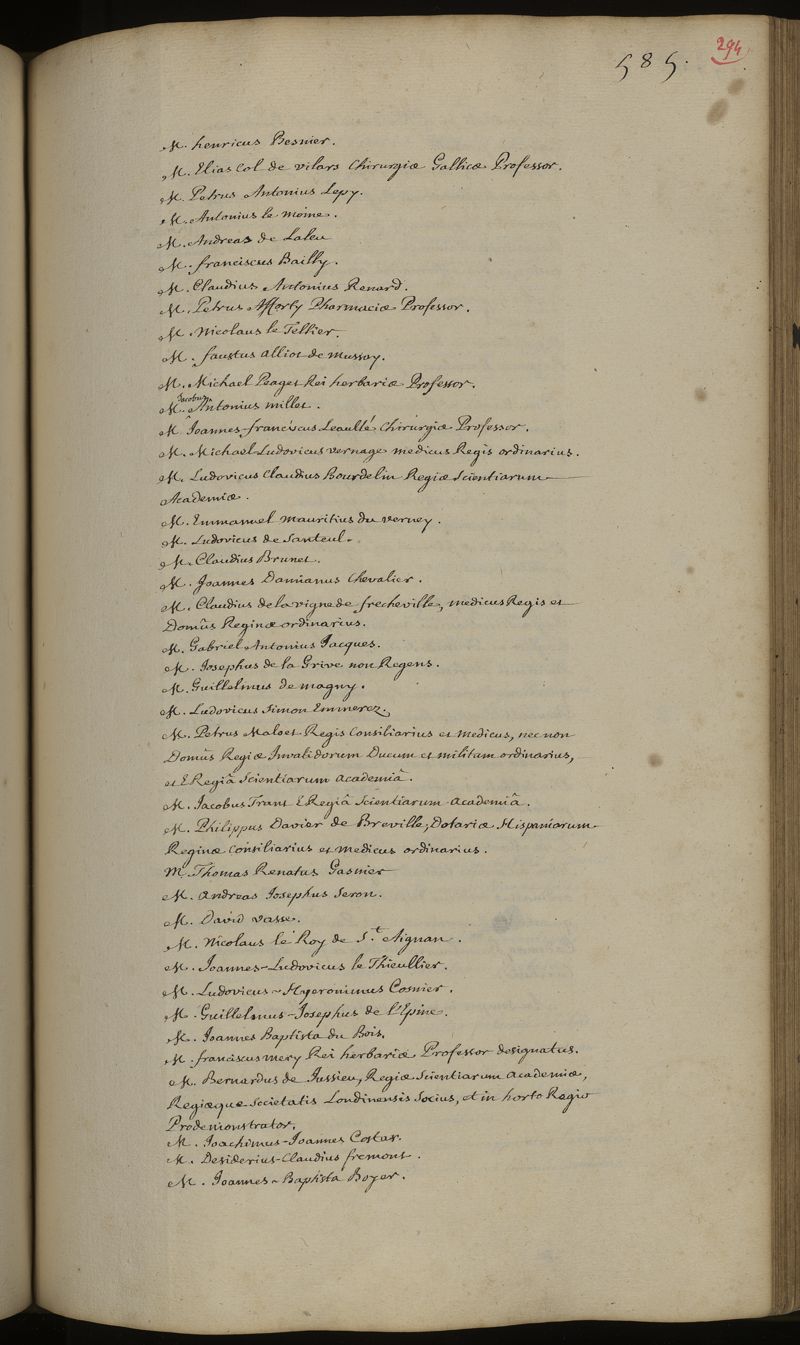 294
585.
M. henricus Besnier.
M. Elias Col de vilars Chirurgiæ Gallicæ Professor.
M. Petrus Antonius Lepy.
M. Antonius le moine.
M. Andreas de Laleu
M. franciscus Bailly.
M. Claudius Antonius Renard.
M. Petrus Afforty Pharmaciæ Professor.
M. Nicolaus le Tellier.
M. faustus alliot de mussay.
M. Michael Peaget Rei herbariæ Professor.
Jacobus
M. Antonius millet.
M. Joannes-franciscus Leaulté Chirurgiæ Professor.
M. Michael-Ludovicus vernage medicus Regis ordinarius.
M. Ludovicus Claudius Bourdelin Regiæ Scientiarum
Academiæ.
M. Emmanuel mauritius du verney.
M. Ludovicus de Santeul.
M. Claudius Brunet.
M. Joannes Damianus Chevalier.
M. Claudius de la vigne de frecheville, medicus Regis et
Domûs Reginæ ordinarius.
M. Gabriel Antonius Jacques.
M. Josephus de la Grive non Regens.
M. Guillelmus de magny.
M. Ludovicus Simon Emmerez.
M. Petrus Maloet Regis Consiliarius et medicus, nec non
Domûs Regiæ Invalidorum Ducum et militum ordinarius,
et E Regiâ Scientiarum academiâ.
M. Jacobus Trant E Regiâ Scientiarum academiâ.
M. Philippus Davier de Breville, Dotariæ Hispaniarum
Reginæ Consiliarius et medicus ordinarius.
M. Thomas Renatus Gasnier
M. andreas Josephus Seron.
M. David vasse.
M. Nicolaus le Roy de S.t Aignan.
M. Joannes-Ludovicus le Thieullier.
M. Ludovicus-Hyeronimus Cosnier.
M. Guillelmus-Josephus de l'Epine.
M. Joannes Baptista du Bois.
M. franciscus mery Rei herbariæ Professor designatus.
M. Bernardus de Jussieu, Regiæ Scientiarum academiæ,
Regiæque Societatis Londinensis Socius, et in horto Regio
Prodemonstrator.
M. Joachimus-Joannes Costar.
M. Desiderius-Claudius fremont.
M. Joannes-Baptista Boyer.